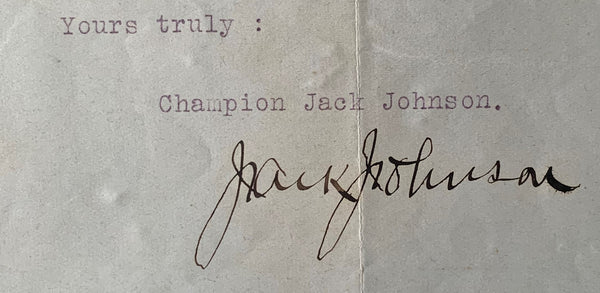 Yours truly :
Champion Jack Johnson.
Jack Johnson